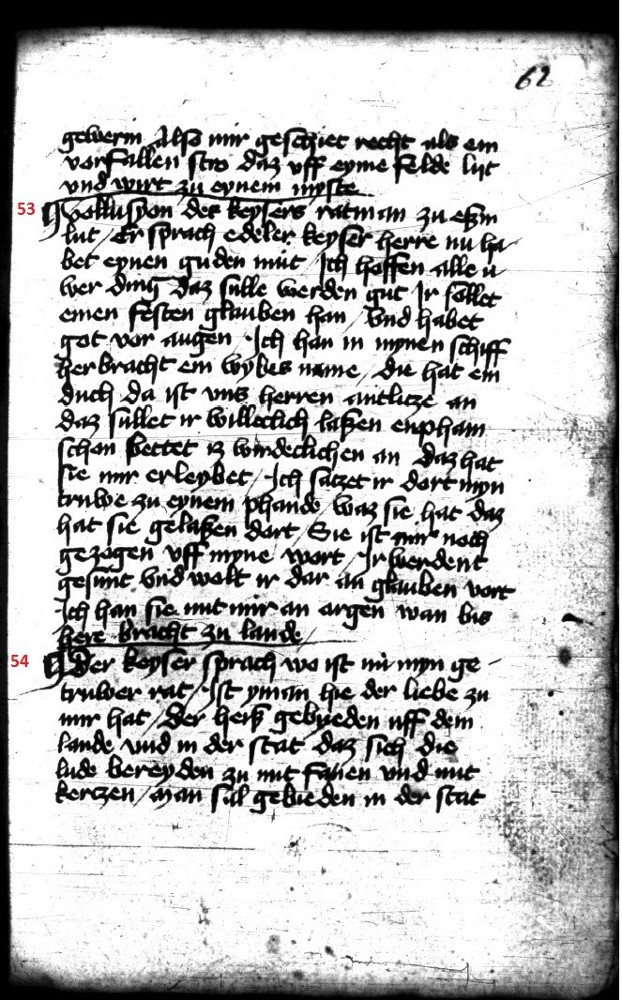 62
gewerin Also mir geschiet recht als ein
vorfallen stro daz vff eyme felde lijt
vnd wirt zu eynem myste
53 Vollusyon des keysers ratman zu
lut / Er sprach edeler keyser herre nu ha
bet eynen guden mut / Ich hoffen alle u
wer ding daz sulle werden gut Ir sollet
einen festen glauben han / Vnd habet
got vor augen / Ich han in mynen schiff
her bracht ein wybes name / die hat ein
duch da ist vns herren antlicze an
daz sullet ir willeclich laßen enpham
schon bettet iz wirdeclichen an daz hat
sie mir erleybet / Ich saczet ir dort myn
truwe zu eynem phande / waz sie hat daz
hat sie gelaßen dort Sie ist mir noch
gezogen vff myne wort / Ir werdent
gesunt vnd wolt ir dar an glauben vort
Ich han sie mit mir an argen wan bis
here bracht zu lande
54 Der keyser sprach wo ist nu myn ge
truwer rat / Ist yman hie der liebe zu
mir hat / Der heiß gebyeden uff dem
lande vnd in der stat daz sich die
lude bereyden zu mit fanen vnd mit
kerczen / Man sal gebieden in der stat